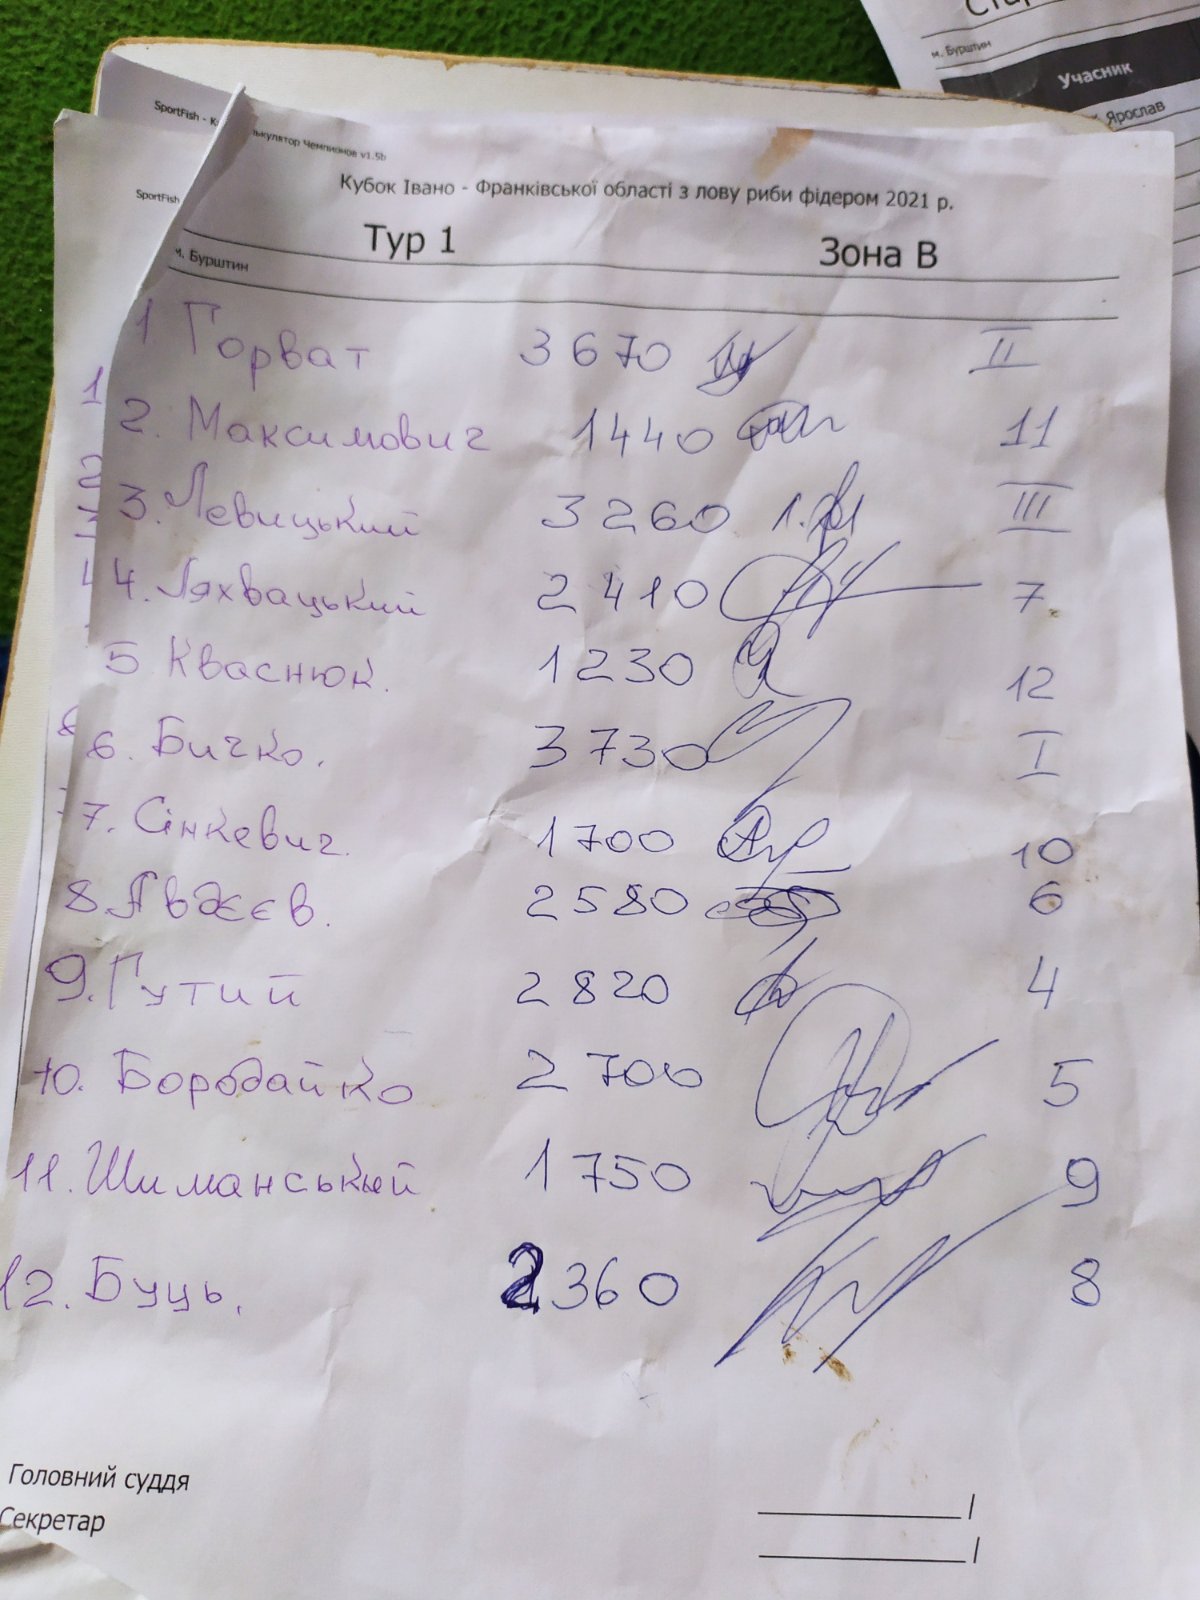 Ста
м. Бурштин
Учасник
Ярослав
SportFish - К
ькулятор Чемпионов v1.5b
SportFish
Кубок Івано - Франківської області з лову риби фідером 2021 р.
Тур 1 Зона В
м. Бурштин
1 Горват 3670 II
2. Максимович 1440 11
3. Левицький 3260 III
4. Ляхвацький 2410 7.
5 Кваснюк. 1230 12
6. Бичко. 3730 I
7. Сінкевич. 1700 10
8. Авдєєв. 2580 6
9. Гутий 2820 4
10. Бородайко 2700 5
11. Шиманський 1750 9
12. Буць. 2360 8
Головний суддя /
Секретар /